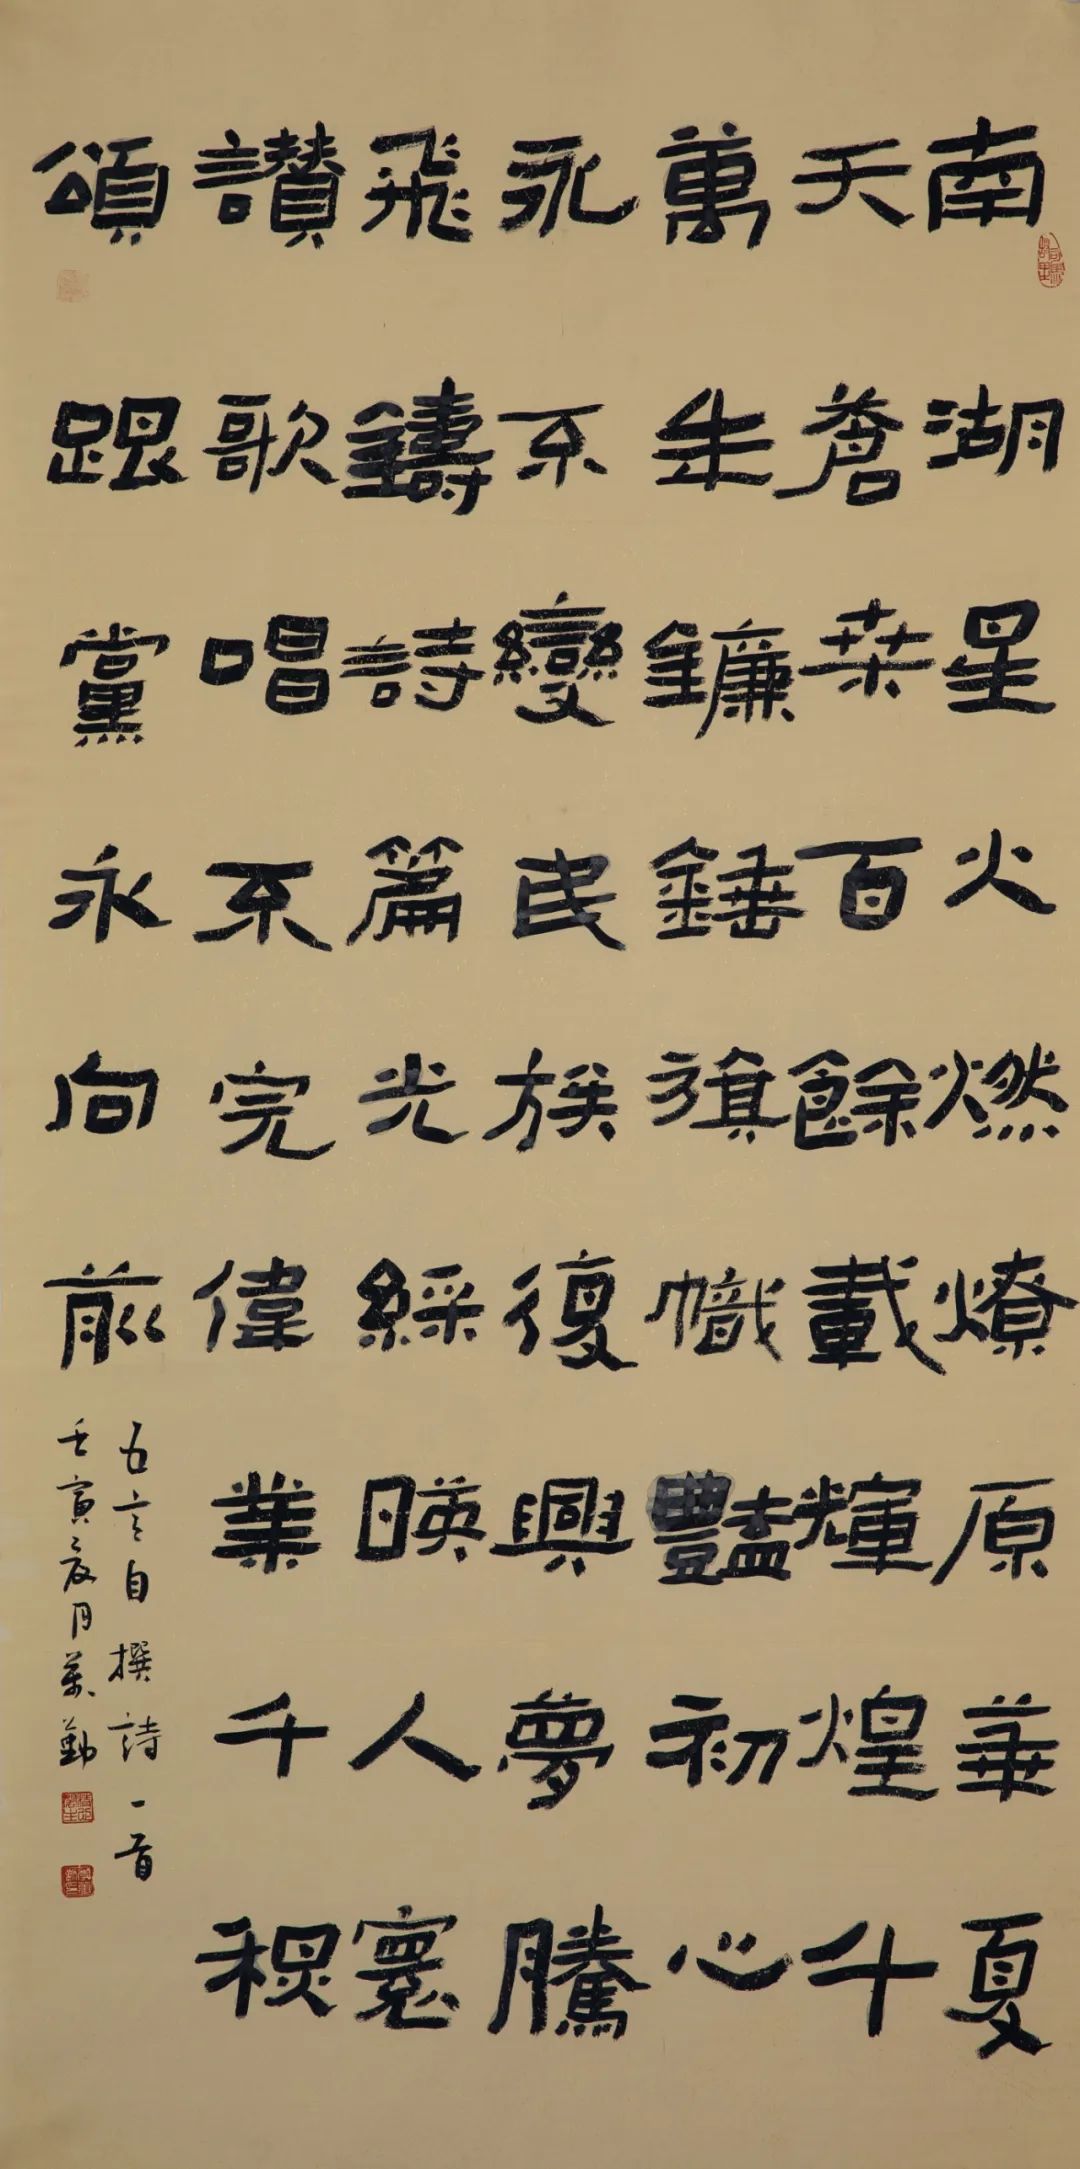 南湖星火燃燎原華夏
天蒼桑百餘載輝煌千
萬年鐮錘旗幟豔初心
永不變民族復興夢騰
飛鑄詩篇光綵暎人寰
讚歌唱不完偉業千秋
頌跟黨永向前
五言自撰詩一首
壬寅夏月萬勤